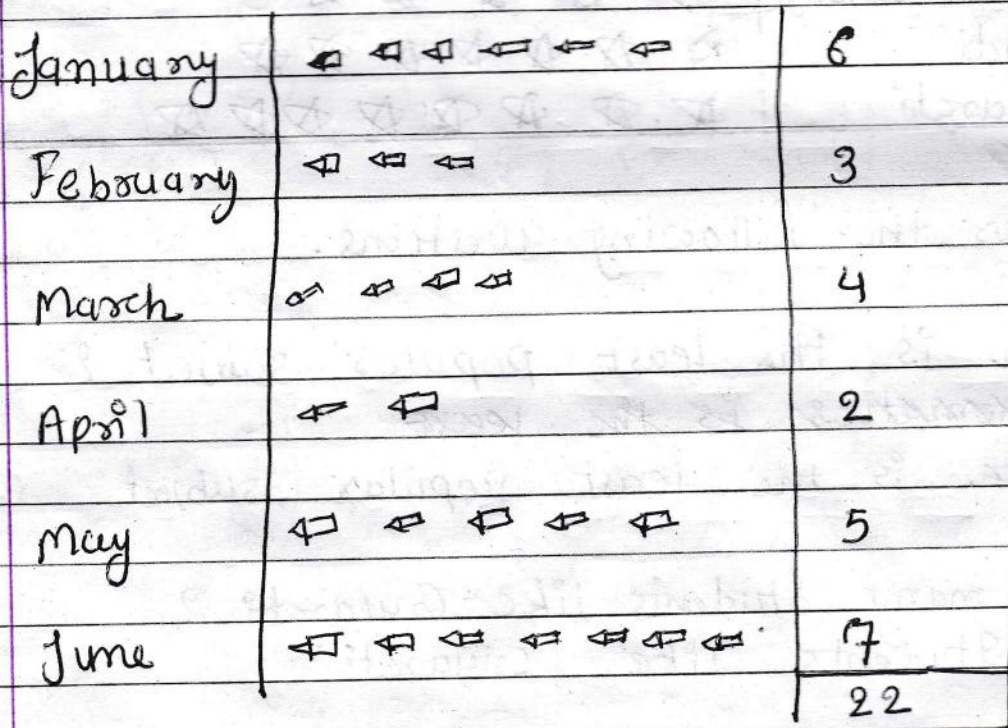 January 6
February 3
March 4
April 2
May 5
June 7
22